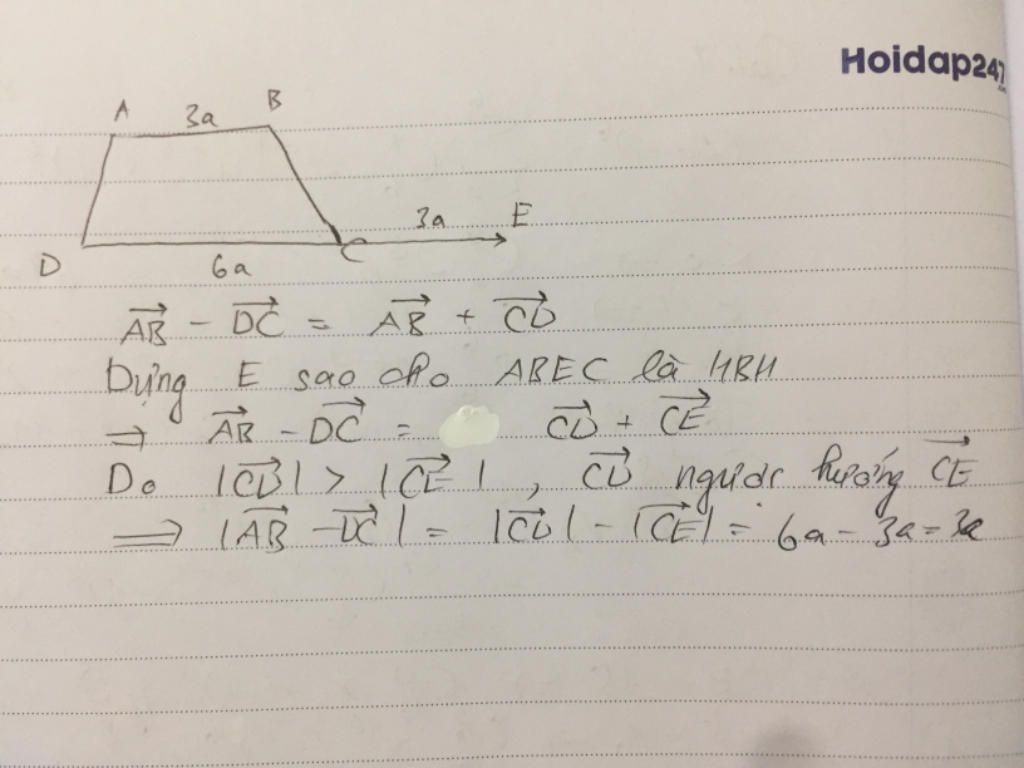 Hoidap247
A 3a B
3a E
D 6a C
\overrightarrow{AB} - \overrightarrow{DC} = \overrightarrow{AB} + \overrightarrow{CD}
Dựng E sao cho ABEC là HBH
⇒ \overrightarrow{AB} - \overrightarrow{DC} = \overrightarrow{CD} + \overrightarrow{CE}
Do |\overrightarrow{CD}| > |\overrightarrow{CE}|, \overrightarrow{CD} ngược hướng \overrightarrow{CE}
⟹ |\overrightarrow{AB} - \overrightarrow{DC}| = |\overrightarrow{CD}| - |\overrightarrow{CE}| = 6a - 3a = 3a